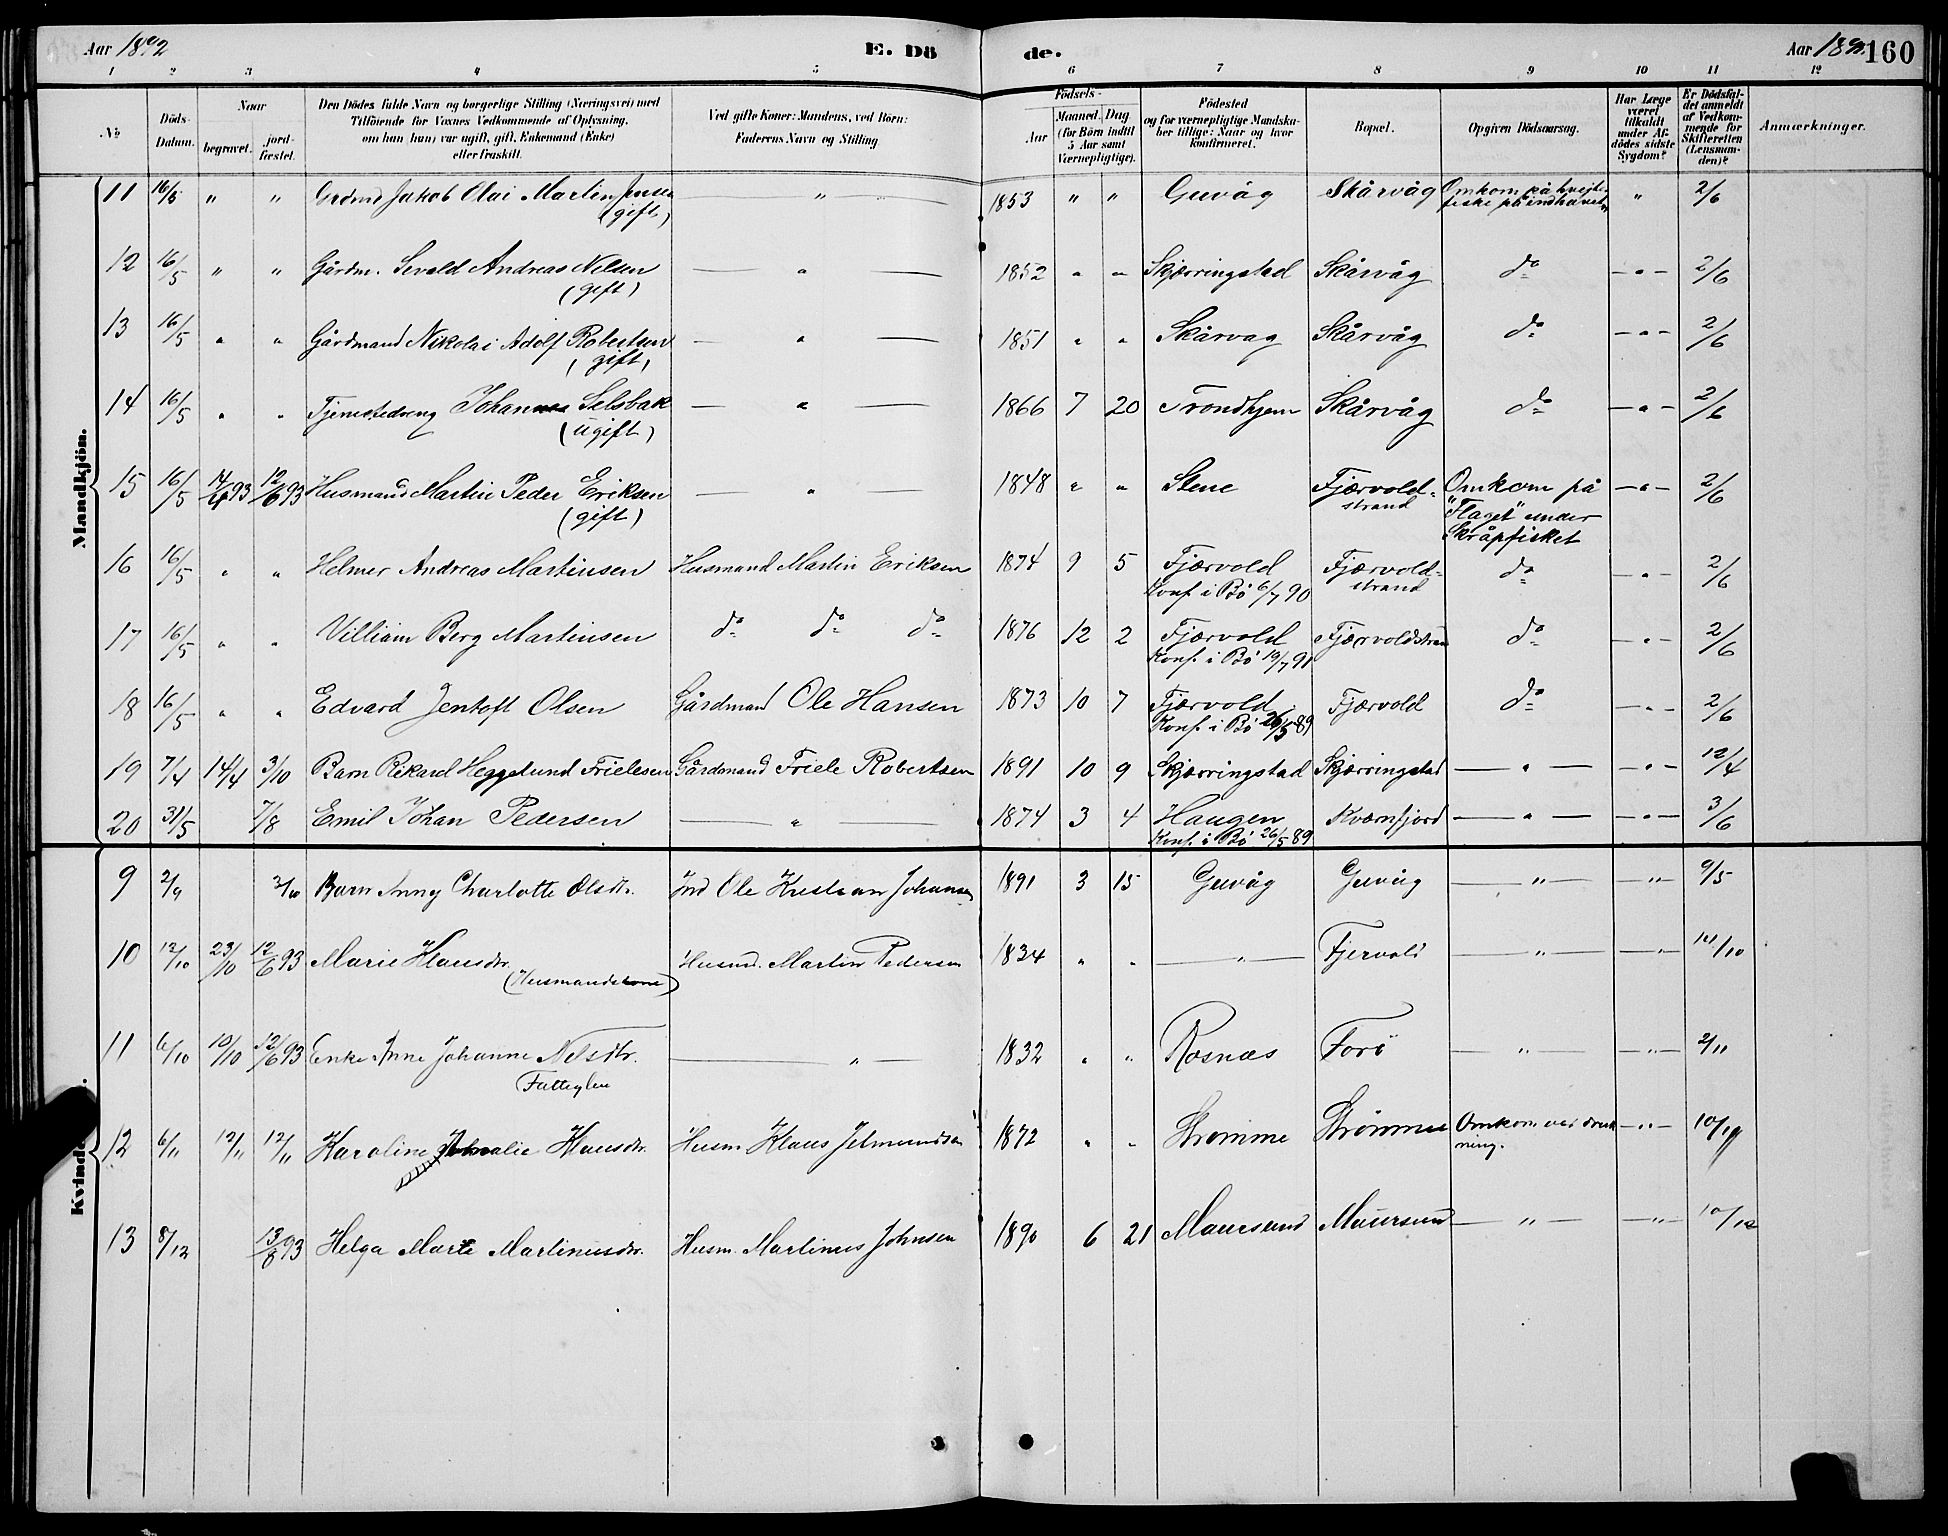 Aar 1892 E. Dö de. Aar 1892. 160
1 2 3 4 5 6 7 8 9 10 11 12
No Döds-Datum. Naar begravet. jordfæstet. Den Dödes fulde Navn og borgerlige Stilling (Næringsvei) med Tilföiende for Voxnes Vedkommende af Oplysning, om han (hun) var ugift, gift, Enkemand (Enke) eller fraskilt. Ved gifte Koner: Mandens, ved Börn: Faderens Navn og Stilling Födsels- Aar Maaned. Dag (for Börn indtil 5 Aar samt Værnepligtige). Födested og for værnepligtige Mandskaber tillige: Naar og hvor konfirmeret. Bopæl. Opgiven Dödsaarsag. Har Læge været tilkaldt under Afdödes sidste Sygdom? Er Dödsfaldet anmeldt af Vedkommende for Skifteretten (Lensmanden)? Anmærkninger.
Mandkjön.
11 16/5 " " Grdmd Jakob Olai Martin Jensen (gift) — " — 1853 " " Guvåg Skårvåg Omkom på hvejtefiske på indhavet " 2/6
12 16/5 " " Gårdm. Sevald Andreas Nilsen (gift) — " — 1852 " " Skjærringstad Skårvåg do — " — 2/6
13 16/5 " " Gårdmand Nikolai Adolf Robertsen (gift) — " — 1851 " " Skårvag Skårvåg do — " — 2/6
14 16/5 " " Tjenestedreng Johannes Selsbak (ugift) — " — 1866 7 20 Trondhjem Skårvåg do — " — 2/6
15 16/5 14/4 93 12/6 93 Husmand Martin Peder Eriksen (gift) — " — 1848 " " Stene Fjærvoldstrand Omkom på "Flaget" under Skråpfisket — " — 2/6
16 16/5 " " Helmer Andreas Martinsen Husmand Martin Eriksen 1874 9 5 Fjærvold Konf. i Bö 6/7 90 Fjærvoldstrand do — " — 2/6
17 16/5 " " Villiam Berg Martinsen do do do 1876 12 2 Fjærvold Konf. i Bö 19/7 91 Fjærvoldstran do — " — 2/6
18 16/5 " " Edvard Jentoft Olsen Gårdmand Ole Hansen 1873 10 7 Fjærvold Konf. i Bö 26/5 89 Fjærvold do — " — 2/6
19 7/4 14/4 3/10 Barn Rikard Heggelund Frielesen Gårdmand Friele Robertsen 1891 10 9 Skjærringstad Skjærringstad — " — — " — 12/4
20 31/5 7/8 Emil Johan Pedersen — " — 1874 3 4 Haugen Konf. i Bö 26/5 89 Kværnfjord — " — — " — 3/6
Kvindekj.
9 2/9 2/10 Barn Anny Charlotte Olsdtr. Ind Ole Kristian Johansen 1891 3 15 Guvåg Guvåg — " — — " — 9/5
10 12/10 23/10 12/6 93 Marie Hansdtr. (Husmandskone) Husmd. Martin Pedersen 1834 " " — " — Fjervold — " — — " — 14/10
11 6/10 10/10 12/6 93 Enke Anne Johanne Nilsdtr. Fattiglem — " — 1832 " " Rosnæs Forö — " — — " — 2/11
12 6/11 12/11 12/11 Karoline Amalie Klausdtr. Husm. Klaus Jelmundsen 1872 " " Strømme Strømme Omkom ved drukning. — " — 10/11
13 8/12 13/8 93 Helga Marie Martinusdtr. Husm. Martinus Johnsen 1890 6 21 Maursund Maursund — " — — " — 10/12